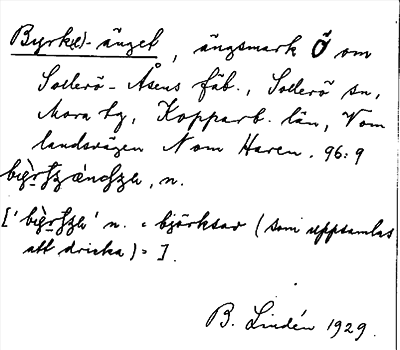 Byrk(e)-änget, ängsmark Ö om
Sollerö-Åsens fäb., Sollerö sn,
Mora tg, Kopparb. län, V om
landsvägen N om Haren. 96:9
n.
[' ' n. = björksav (som uppsamlas
att dricka) = ].
B. Lindén 1929.